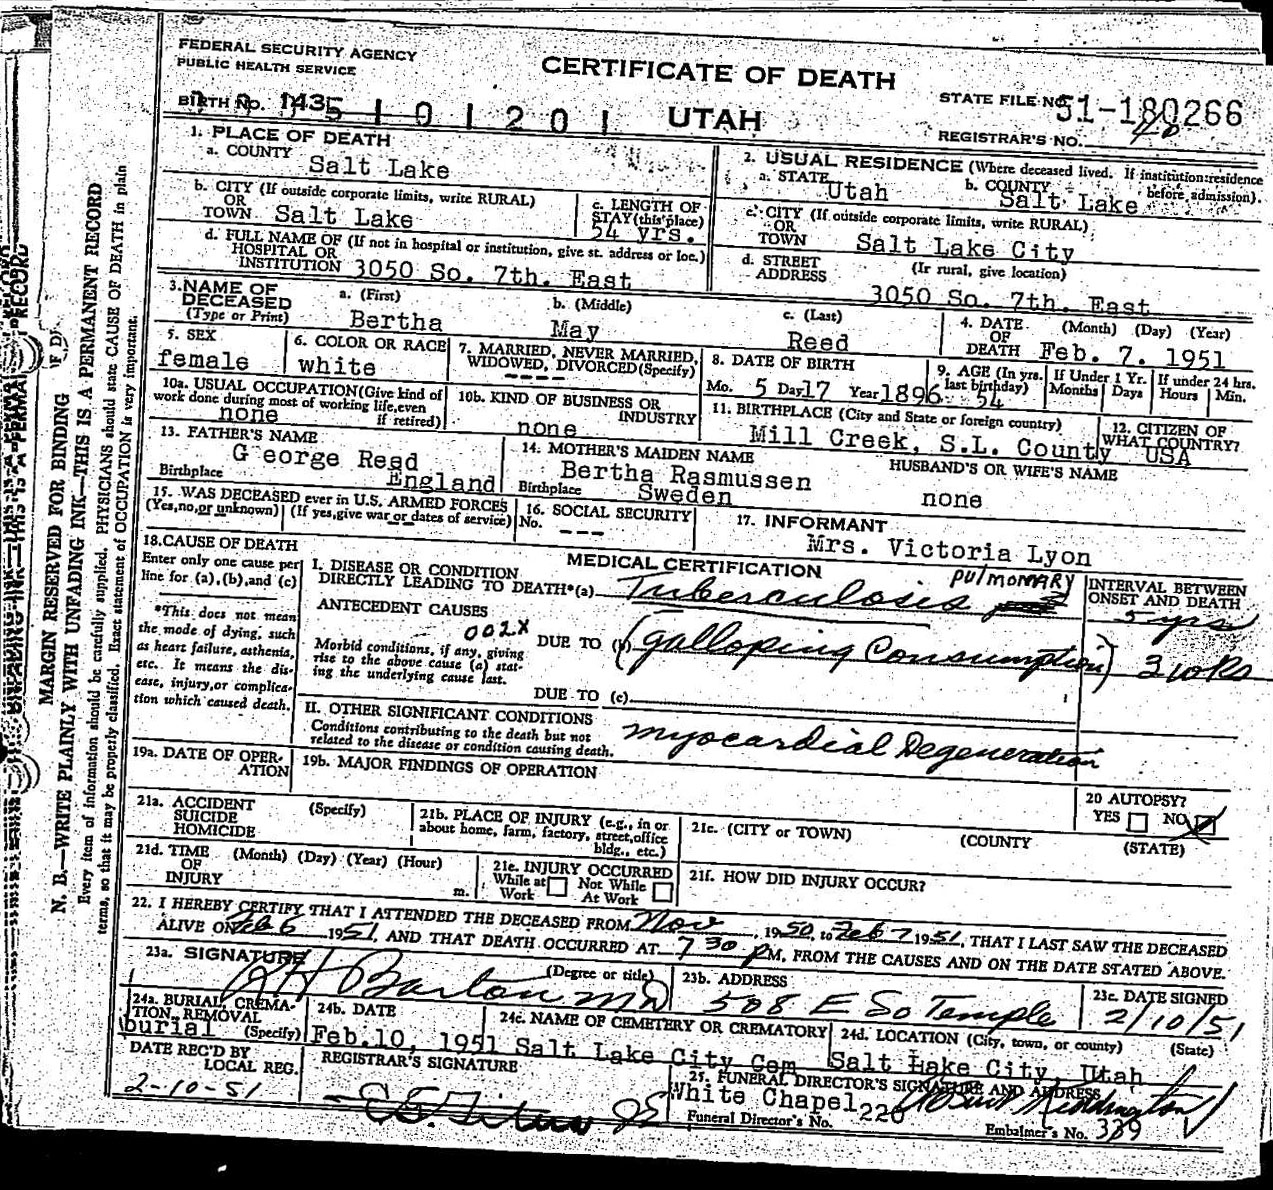 FEDERAL SECURITY AGENCY
PUBLIC HEALTH SERVICE
CERTIFICATE OF DEATH
UTAH
STATE FILE NO. 51-180266
REGISTRAR'S NO.
BIRTH NO. 1435 101201
1. PLACE OF DEATH
a. COUNTY
Salt Lake
b. CITY (If outside corporate limits, write RURAL)
OR
TOWN Salt Lake
c. LENGTH OF
STAY (this place)
54 yrs.
d. FULL NAME OF (If not in hospital or institution, give st. address or loc.)
HOSPITAL OR
INSTITUTION 3050 So. 7th. East
2. USUAL RESIDENCE (Where deceased lived. If institution:residence
before admission).
a. STATE Utah
b. COUNTY Salt Lake
c. CITY (If outside corporate limits, write RURAL)
OR
TOWN Salt Lake City
d. STREET (If rural, give location)
ADDRESS 3050 So. 7th. East
3. NAME OF
DECEASED
(Type or Print)
a. (First) Bertha
b. (Middle) May
c. (Last) Reed
4. DATE (Month) (Day) (Year)
OF
DEATH Feb. 7. 1951
5. SEX
female
6. COLOR OR RACE
white
7. MARRIED, NEVER MARRIED,
WIDOWED, DIVORCED (Specify)
----
8. DATE OF BIRTH
Mo. 5 Day 17 Year 1896
9. AGE (In yrs.
last birthday)
54
If Under 1 Yr.
Months Days
If under 24 hrs.
Hours Min.
10a. USUAL OCCUPATION (Give kind of
work done during most of working life, even
if retired)
none
10b. KIND OF BUSINESS OR
INDUSTRY
none
11. BIRTHPLACE (City and State or foreign country)
Mill Creek, S.L. County
12. CITIZEN OF
WHAT COUNTRY?
USA
13. FATHER'S NAME
George Reed
Birthplace England
14. MOTHER'S MAIDEN NAME
Bertha Rasmussen
Birthplace Sweden
HUSBAND'S OR WIFE'S NAME
none
15. WAS DECEASED ever in U.S. ARMED FORCES
(Yes, no, or unknown) (If yes, give war or dates of service)
--
16. SOCIAL SECURITY
No. ---
17. INFORMANT
Mrs. Victoria Lyon
18. CAUSE OF DEATH
Enter only one cause per
line for (a), (b), and (c)
*This does not mean
the mode of dying, such
as heart failure, asthenia,
etc. It means the dis-
ease, injury, or complica-
tion which caused death.
MEDICAL CERTIFICATION
INTERVAL BETWEEN
ONSET AND DEATH
I. DISEASE OR CONDITION
DIRECTLY LEADING TO DEATH*(a) Tuberculosis PULMONARY 5 yrs
ANTECEDENT CAUSES
002X
Morbid conditions, if any, giving
rise to the above cause (a) stat-
ing the underlying cause last.
DUE TO (b) (galloping Consumption) 3 wks
DUE TO (c)
II. OTHER SIGNIFICANT CONDITIONS
Conditions contributing to the death but not
related to the disease or condition causing death.
Myocardial Degeneration
19a. DATE OF OPER-
ATION
19b. MAJOR FINDINGS OF OPERATION
20 AUTOPSY?
YES NO
21a. ACCIDENT
SUICIDE
HOMICIDE
(Specify)
21b. PLACE OF INJURY (e.g., in or
about home, farm, factory, street, office
bldg., etc.)
21c. (CITY or TOWN) (COUNTY (STATE)
21d. TIME (Month) (Day) (Year) (Hour)
OF
INJURY m.
21e. INJURY OCCURRED
While at Not While
Work At Work
21f. HOW DID INJURY OCCUR?
22. I HEREBY CERTIFY THAT I ATTENDED THE DECEASED FROM Nov, 1950, to Feb 7 1951, THAT I LAST SAW THE DECEASED
ALIVE ON Feb 6 1951, AND THAT DEATH OCCURRED AT 7 30 PM, FROM THE CAUSES AND ON THE DATE STATED ABOVE.
23a. SIGNATURE (Degree or title)
R H Barton MD
23b. ADDRESS
508 E So Temple
23c. DATE SIGNED
2/10/51
24a. BURIAL, CREMA-
TION, REMOVAL
burial (Specify)
24b. DATE
Feb.10, 1951
24c. NAME OF CEMETERY OR CREMATORY
Salt Lake City Cem
24d. LOCATION (City, town, or county) (State)
Salt Lake City, Utah
DATE REC'D BY
LOCAL REG.
2-10-51
REGISTRAR'S SIGNATURE
25. FUNERAL DIRECTOR'S SIGNATURE AND ADDRESS
White Chapel
Funeral Director's No. 226
Embalmer's No. 339
MARGIN RESERVED FOR BINDING
N. B.—WRITE PLAINLY WITH UNFADING INK—THIS IS A PERMANENT RECORD
Every item of information should be carefully supplied. PHYSICIANS should state CAUSE OF DEATH in plain
terms, so that it may be properly classified. Exact statement of OCCUPATION is very important.